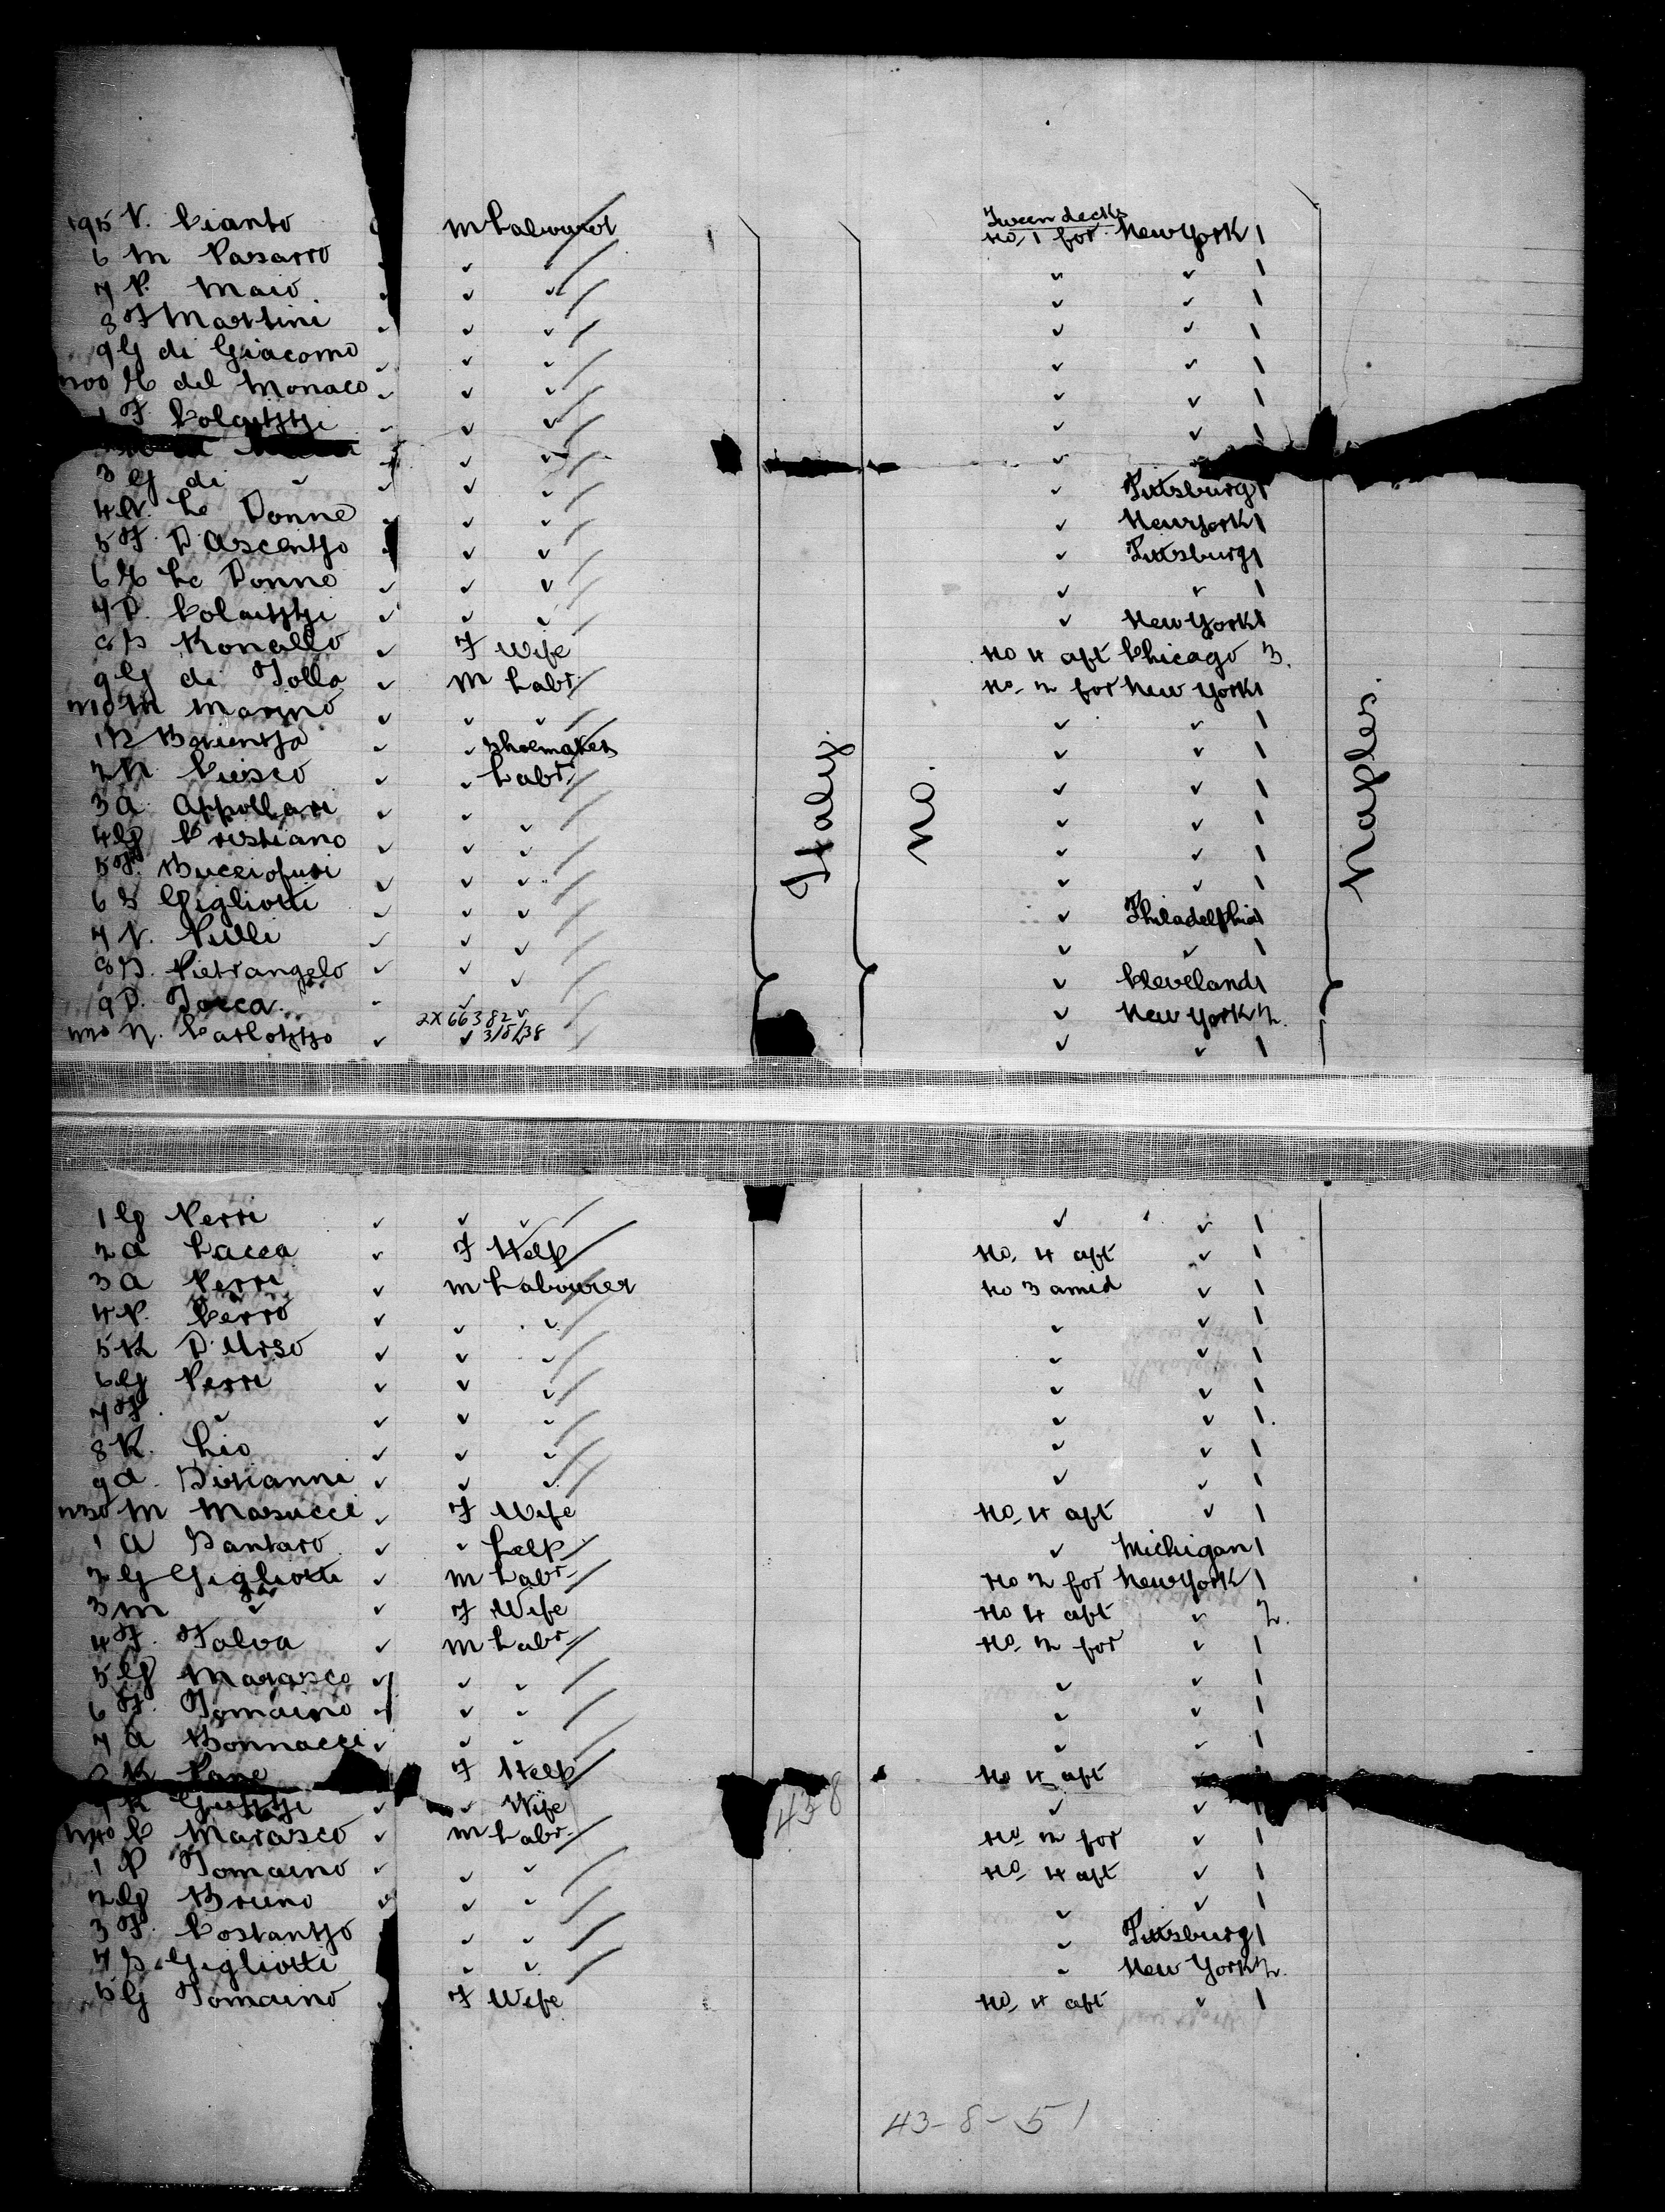 Tween decks
195 V. Cianto m Labourer no. 1 for New York 1
6 m Pasarro ✓ ✓ ✓ ✓ ✓ 1
7 P. Maio ✓ ✓ ✓ ✓ ✓ 1
8 F Martini ✓ ✓ ✓ ✓ ✓ 1
9 G di Giacomo ✓ ✓ ✓ ✓ ✓ 1
200 del Monaco ✓ ✓ ✓ ✓ ✓ 1
1 F. Colaizzi ✓ ✓ ✓ ✓ ✓ 1
✓ ✓ ✓ ✓
3 G di ✓ ✓ ✓ ✓ ✓ Pittsburg 1
4 Le Donne ✓ ✓ ✓ ✓ New York 1
5 F. D'Ascenzo ✓ ✓ ✓ Pittsburg 1
6 Le Donne ✓ ✓ ✓ ✓ ✓ 1
7 D. Colaizzi ✓ ✓ ✓ ✓ New York 1
8 S Ronallo ✓ F Wife No 4 aft Chicago 3.
9 G di Tolla ✓ m Labr. No. 2 for New York 1
210 M Marino ✓ ✓ ✓ ✓ ✓ 1
1 ✓ ✓ Shoemaker ✓ ✓ 1
2 N Cuisco ✓ ✓ Labr. ✓ ✓ 1
3 A. Appollari ✓ ✓ ✓ ✓ ✓ 1
4 G Cristiano ✓ ✓ ✓ ✓ ✓ 1
5 F. Bucciofuri ✓ ✓ ✓ ✓ ✓ 1
6 S Gigliotti ✓ ✓ ✓ ✓ Philadelphia 1
7 V. Pulli ✓ ✓ ✓ ✓ ✓ 1
8 S. Pietrangelo ✓ ✓ ✓ ✓ Cleveland 1
9 D. Tocca ✓ ✓ ✓ New York 2.
2X66382 ✓
220 N. Carlozzo ✓ ✓ 3/5/38 ✓ ✓ 1
Italy.
No.
Naples.
1 G Perri ✓ ✓ ✓ ✓ ✓ 1
2 A Cacca ✓ F Help No. 4 aft ✓ 1
3 A Perri ✓ m Labourer No 3 amid ✓ 1
4 P. Cerro ✓ ✓ ✓ ✓ ✓ 1
5 R D'Urso ✓ ✓ ✓ ✓ ✓ 1
6 G Perri ✓ ✓ ✓ ✓ ✓ 1
7 F. ✓ ✓ ✓ ✓ ✓ ✓ 1.
8 R. Lio ✓ ✓ ✓ ✓ ✓ 1
9 A. Sirianni ✓ ✓ ✓ ✓ ✓ 1
230 M Masucci ✓ F Wife No. 4 aft ✓ 1
1 A Santaro ✓ ✓ help ✓ Michigan 1
2 G Gigliotti ✓ m Labr. No 2 for New York 1
3 m ✓ ✓ F Wife No 4 aft ✓ 2.
4 F. Falva ✓ m Labr. No. 2 for ✓ 1
5 G Marasco ✓ ✓ ✓ ✓ ✓ 1
6 F. Tomaino ✓ ✓ ✓ ✓ ✓ 1
7 A Bonnacci ✓ ✓ ✓ ✓ ✓ 1
R Pane F Help No 4 aft
9 R Guzzi ✓ ✓ Wife ✓ ✓ 1
438
240 C Marasco ✓ m Labr. No. 2 for ✓ 1
1 P Tomaino ✓ ✓ ✓ No. 4 aft ✓ 1
2 G Bruno ✓ ✓ ✓ ✓ ✓ 1
3 F. Costanzo ✓ ✓ ✓ Pittsburg 1
4 S. Gigliotti ✓ ✓ ✓ New York 2.
5 G Tomaino ✓ F Wife No. 4 aft ✓ 1
43-8-51